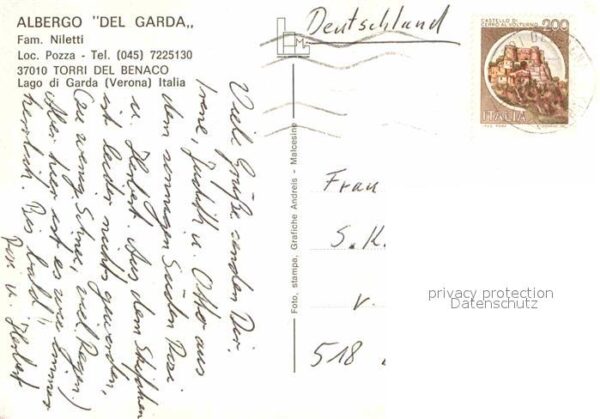 ALBERGO "DEL GARDA„
Fam. Niletti
Loc. Pozza - Tel. (045) 7225130
37010 TORRI DEL BENACO
Lago di Garda (Verona) Italia
Deutschland
CASTELLO DI
CERRO AL VOLTURNO
200
ITALIA
Viele Grüße senden Dir,
Irene, Judith u. Otto aus
dem sonnigen Süden Rosi
u. Herbert. Aus dem
ist leider nichts geworden,
(zu wenig Schnee, viel Regen)
Aber hier ist es wie immer
herrlich. Bis bald!
Rosi u. Herbert
Foto, stampa, Grafiche Andreis - Malcesine
Frau
S.K.
v.
518
privacy protection
Datenschutz